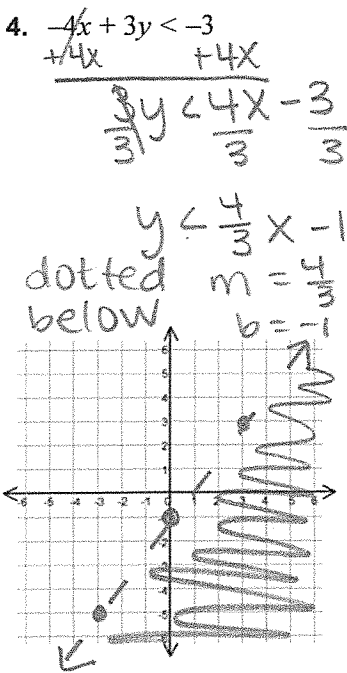 4. –4x + 3y < –3
+4x +4x
3y < 4x – 3
3 3 3
y < 4/3 x – 1
dotted m = 4/3
below b = –1
6
5
4
3
2
1
-6 -5 -4 -3 -2 -1 0 1 2 3 4 5 6